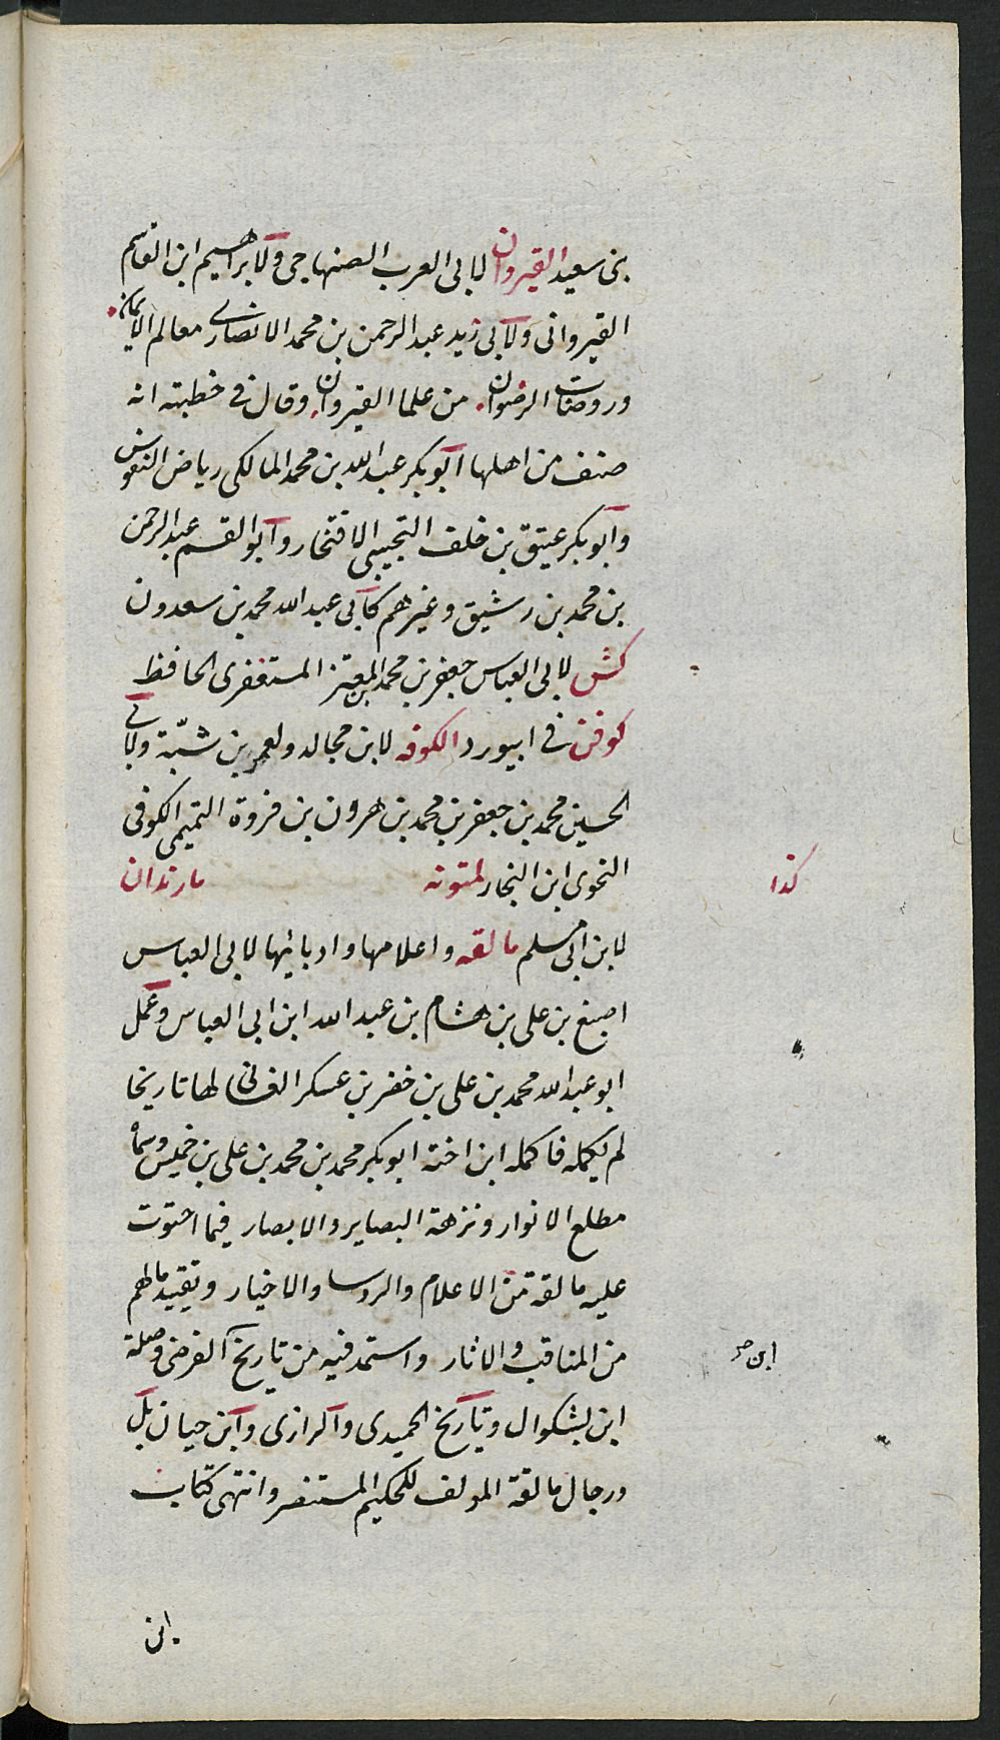 بنى سعيد القيروان لابى العرب الصنهاجى ولابراهيم ابن القاسم
القيروانى ولابى زيد عبد الرحمن بن محمد الانصارى معالم الايمان
وروضات الرضوان من علما القيروان وقال فى خطبته انه
صنف من اهلها ابو بكر عبد الله بن محمد المالكى رياض النفوس
وابو بكر عتيق بن خلف التجيبى الافتخار وابو القسم عبد الرحمن
بن محمد بن رشيق وغيرهم كابى عبد الله محمد بن سعدون
كش لابى العباس جعفر بن محمد بن المعتز المستغفرى الحافظ
كوفن فى ابيورد الكوفه لابن مجالد ولعمر بن شبّة ولابى
الحسين محمد بن جعفر بن محمد بن هرون بن فروة التميمى الكوفى
النحوى ابن النجار لمتونه مارندان
كذا
لابن ابى مسلم مالقه واعلامها وادبائها لابى العباس
اصبغ بن على بن هشام بن عبد الله ابن ابى العباس وعمل
ابو عبد الله محمد بن على بن خضر بن عسكر الغسانى لها تاريخا
لم يكمله فاكمله ابن اخته ابو بكر محمد بن محمد بن على بن خميس وسماه
مطلع الانوار ونزهة البصاير والابصار فيما احتوت
عليه مالقة من الاعلام والروسا والاخيار وتقييد مالهم
من المناقب والاثار واستمد فيه من تاريخ الفرضى وصلة
ابن
ابن بشكوال وتاريخ الحميدى والرازى وابن حيان بل
ورجال مالقة المولف للحكيم المستنصر وانتهى كتاب
ابن